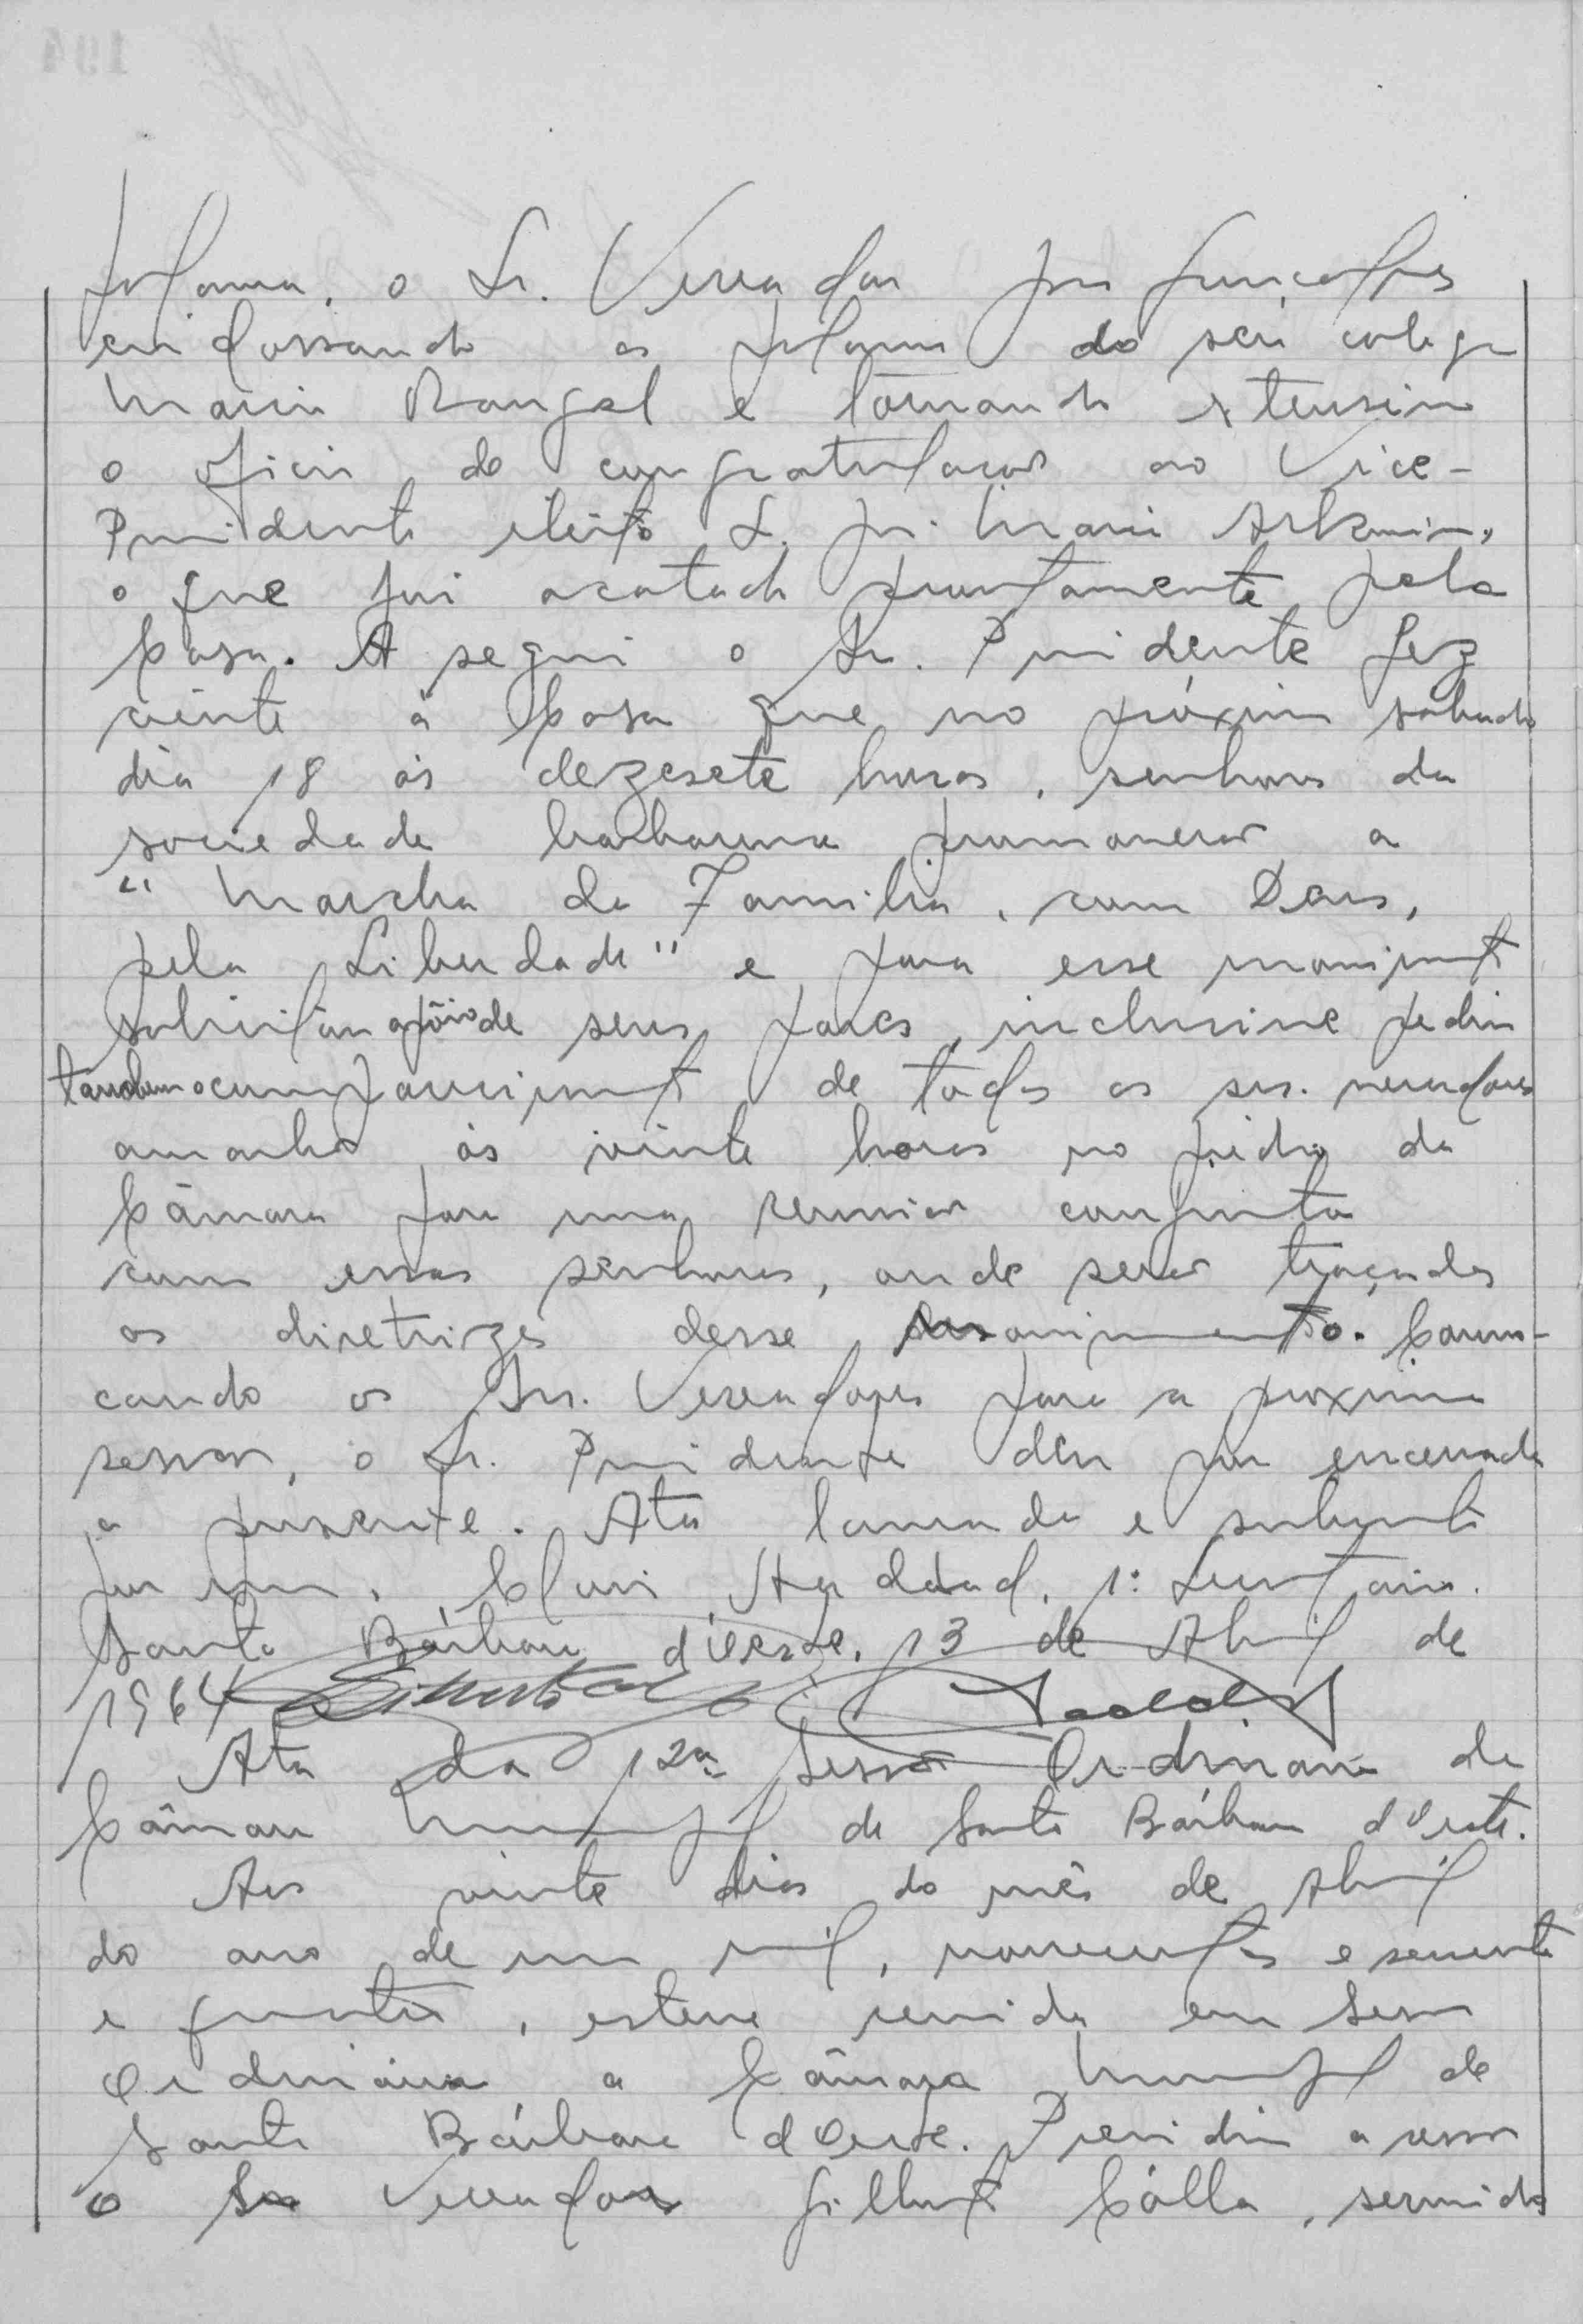 palavra, o Sr. Vereador
endossando as palavras do seu colega
Mario Rangel e tornando extensivo
o oficio de congratulaçoes ao Vice-
Presidente eleito Sr. José Maria Alkmin,
o que foi acatado prontamente pela
Casa. A seguir o Sr. Presidente fez
ciente à Casa que no próximo sabado
dia 18 às dezesete horas, senhoras da
sociedade barbarense promoverão a
"Marcha da Familia, com Deus,
pela Liberdade" e para esse movimento
solicitou apôio de seus pares, inclusive pediu
tambem o comparecimento de todos os srs. vereadores
amanhã às vinte horas no prédio da
Câmara para uma reunião conjunta
com essas senhoras, onde serão traçadas
as diretrizes desse movimento. Convo-
cando os Srs. Vereadores para a proxima
sessão, o Sr. Presidente deu por encerrada
a presente. Ata lavrada e subscrita
por mim, Haddad, 1º Secretario.
Santa Bárbara d'Oeste, 13 de Abril de
1964
Ata da 12ª Sessão Ordinaria da
Câmara Municipal de Santa Bárbara d'Oeste.
Aos vinte dias do mês de Abril
do ano de um mil, novecentos e sessenta
e quatro, esteve reunida em Sessão
Ordinária a Câmara Municipal de
Santa Bárbara d'Oeste. Presidiu a sessão
o Sr Vereador Gilberto Cálla, servindo